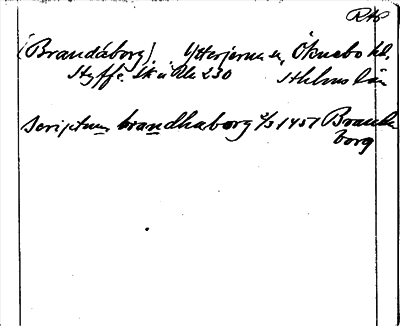 RAP
(Brandåborg). Ytterjerna sn, Öknebo hd,
Styffe. Sk u Un 230 Sthlms län
Scriptum brandhaborg 2/3 1451 Brand
borg